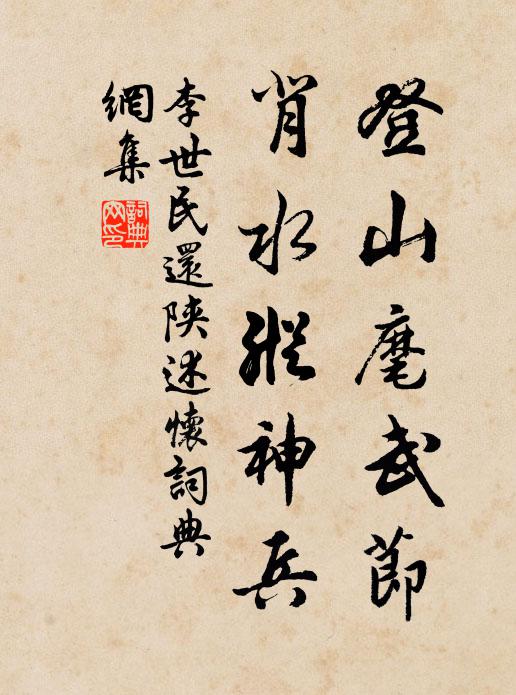 登山麾武節
背水縱神兵
李世民還陝述懷詞典
網集
詞典
网印